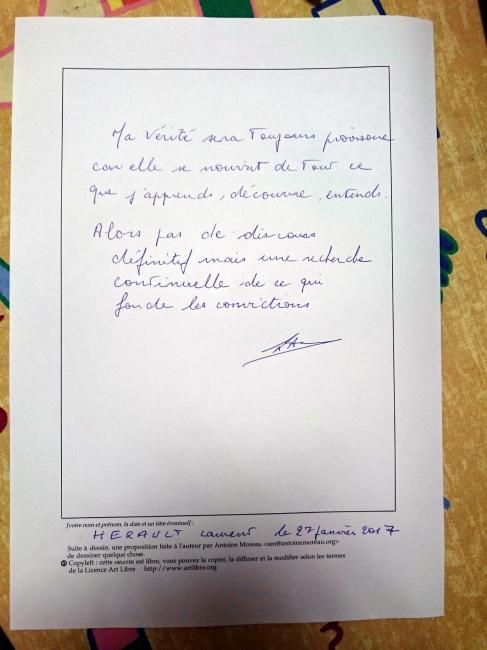 Ma Vérité sera Toujours provisoire
car elle se nourrit de Tout ce
que j'apprends, découvre, entends.
Alors pas de discours
définitif mais une recherche
continuelle de ce qui
fonde les convictions
[votre nom et prénom, la date et un titre éventuel] :
HERAULT Laurent le 27 janvier 2017
Suite à dessin, une proposition faite à l'auteur par Antoine Moreau <am@antoinemoreau.org>
de dessiner quelque chose.
Copyleft : cette oeuvre est libre, vous pouvez la copier, la diffuser et la modifier selon les termes
de la Licence Art Libre http://www.artlibre.org